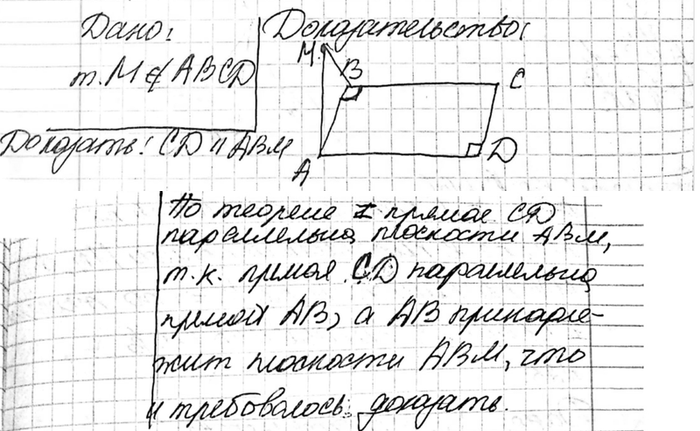 Дано:
Доказательство:
т. M ∉ ABCD
M
B
C
Доказать: CD ∥ ABM
D
A
По теореме 1 прямая CD
параллельна плоскости ABM,
т.к. прямая CD параллельна
прямой AB, а AB принадле-
жит плоскости ABM, что
и требовалось доказать.